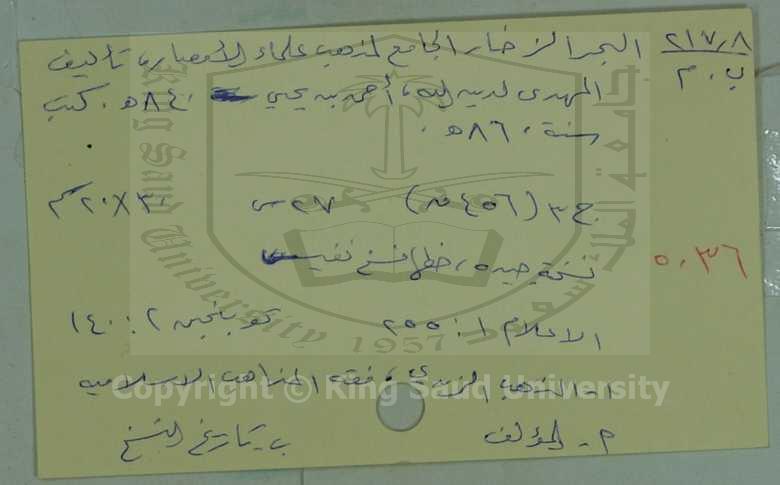 ٢١٧٫٨
ب . م
البحر الزخار الجامع لمذهب علماء الأمصار، تأليف
المهدى لدين الله، أحمد بن يحيى - ٨٤٠هـ. كتب
سنة ٨٦٠هـ.
ج٣ (٤٥٦ ق) ٢٧ س ٣٠×٢٠سم
٥٠٣٦
نسخة جيدة، خطها نسخ نفيس
الاعلام ١: ٢٥٥ كوبنجن ٢: ١٤٠
١- المذهب الزيدي، فقه المذاهب الاسلاميه
م - المؤلف ب - تاريخ النسخ
جامعة الملك سعود
King Saud University
1957
Copyright © King Saud University